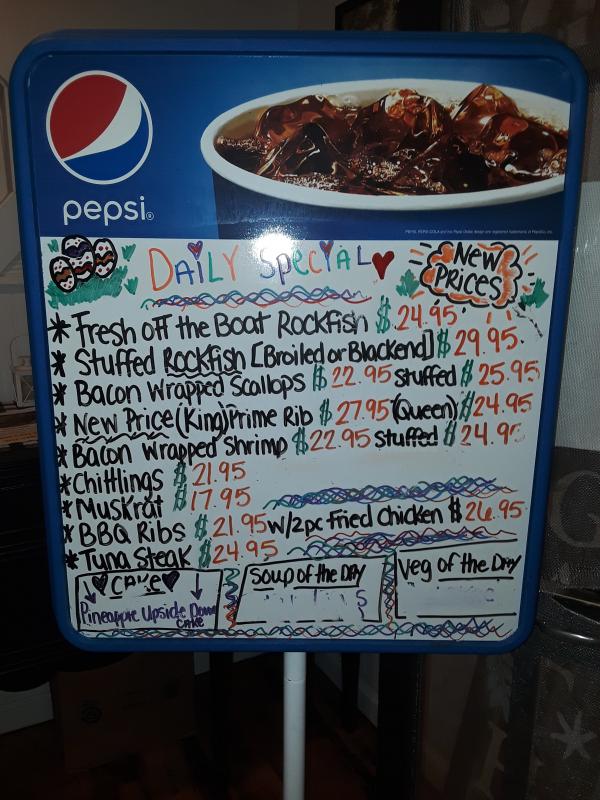 pepsi®
DAILY SpeciAL
New Prices
* Fresh off the Boat Rockfish $24.95
* Stuffed Rockfish [Broiled or Blackend] $29.95
* Bacon Wrapped Scallops $22.95 stuffed $25.95
* New Price (King) Prime Rib $27.95 (Queen) $24.95
* Bacon Wrapped Shrimp $22.95 stuffed
* Chittlings $21.95
* Muskrat $17.95
* BBQ Ribs $21.95 w/2pc Fried Chicken $26.95
* Tuna Steak $24.95
CAKE
Pineapple Upside Down
CAKE
Soup of the DAY
Veg of the DAY